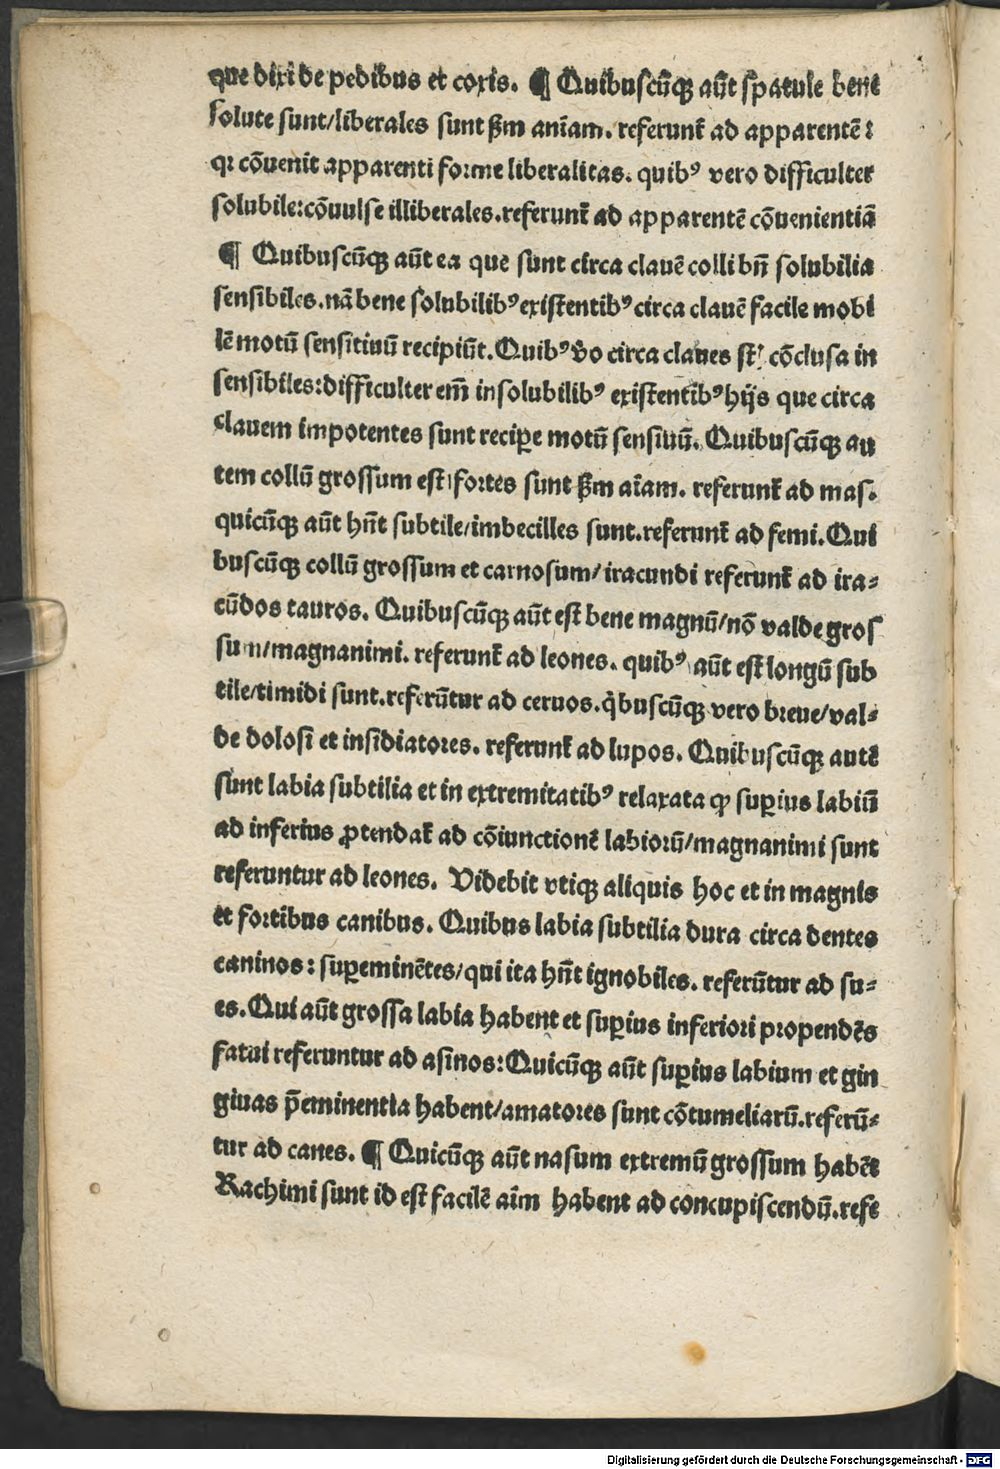 que dixi de pedibus et coxis. ¶ Quibuscūqꝫ aūt spatule bene
solute sunt/liberales sunt ẞm aniam. referunt̄ ad apparentē:
qꝛ cōuenit apparenti forme liberalitas. quibꝰ vero difficulter
solubile: cōuulse illiberales. referunt̄ ad apparentē cōuenientiā
¶ Quibuscūqꝫ aūt ea que sunt circa clauē colli bn̄ solubilia
sensibiles. nā bene solubilibꝰ existentibꝰ circa clauē facile mobi
lē motū sensitiuū recipiūt. Quibꝰ v̄o circa claues st̄ cōclusa in
sensibiles: difficulter em̄ insolubilibꝰ existentibꝰ hijs que circa
clauem impotentes sunt reciꝑe motū sensiuū. Quibuscūqꝫ au
tem collū grossum est/fortes sunt ẞm aīam. referunt̄ ad mas.
quicūqꝫ aūt hn̄t subtile/imbecilles sunt. referunt̄ ad femi. Qui
buscūqꝫ collū grossum et carnosum/iracundi referunt̄ ad ira⸗
cūdos tauros. Quibuscūqꝫ aūt est bene magnū/nō valde gros
sum/magnanimi. referunt̄ ad leones. quibꝰ aūt est longū sub
tile/timidi sunt. referūtur ad ceruos. q̇buscūqꝫ vero breue/val⸗
de dolosi et insidiatores. referunt̄ ad lupos. Quibuscūqꝫ autē
sunt labia subtilia et in extremitatibꝰ relaxata ꝙ suꝑius labiū
ad inferius ꝓtendat̄ ad cōiunctionē labiorū/magnanimi sunt
referuntur ad leones. Videbit vtiqꝫ aliquis hoc et in magnis
et fortibus canibus. Quibus labia subtilia dura circa dentes
caninos: suꝑeminētes/qui ita hn̄t ignobiles. referūtur ad su⸗
es. Qui aūt grossa labia habent et suꝑius inferiori propendēs
fatui referuntur ad asinos: Quicūqꝫ aūt suꝑius labium et gin
giuas p̄eminentia habent/amatores sunt cōtumeliarū. referū⸗
tur ad canes. ¶ Quicūqꝫ aūt nasum extremū grossum habēt
Rachimi sunt id est facilē aīm habent ad concupiscendū. refe
Digitalisierung gefördert durch die Deutsche Forschungsgemeinschaft - DFG